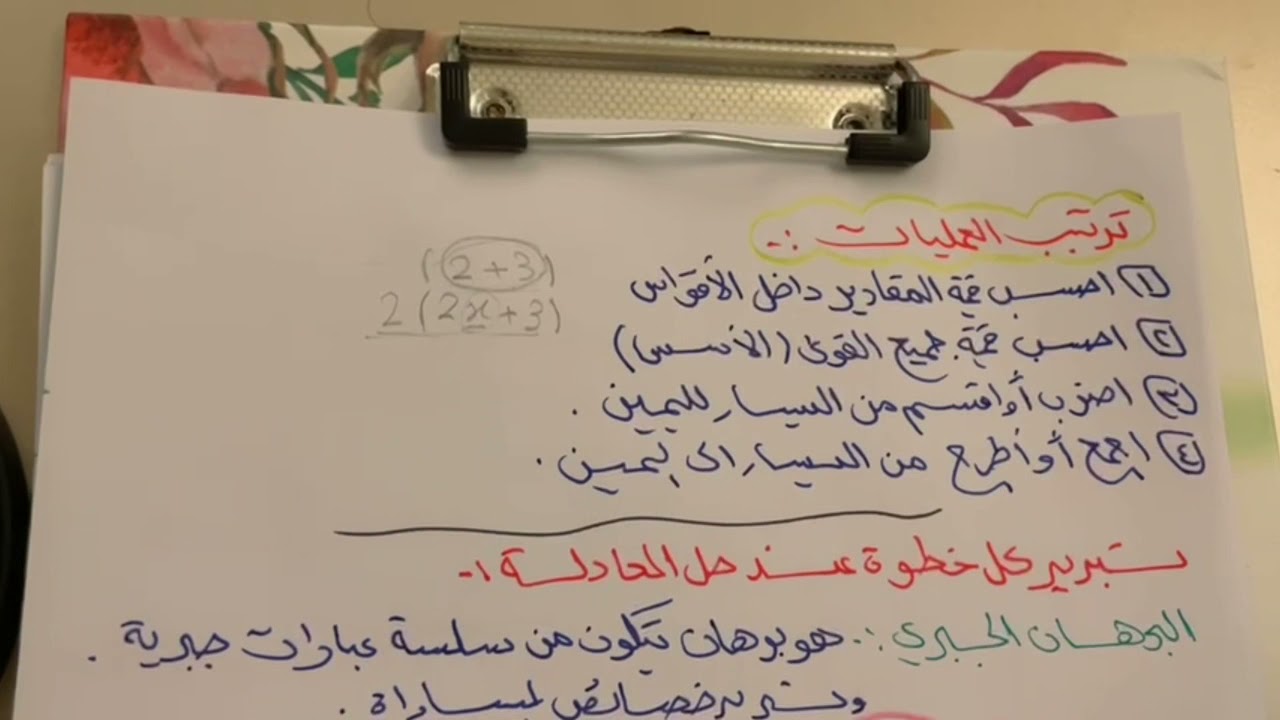 ترتيب العمليات :-
① احسب قيمة المقادير داخل الأقواس
(2+3)
② احسب قيمة جميع القوى (الأسس)
2(2x+3)
③ اضرب أو اقسم من اليسار لليمين .
④ اجمع أو أطرح من اليسار الى ليمين .
تبرير كل خطوة عند حل المعادلة :-
البرهان الجبري :- هو برهان يتكون من سلسة عبارات جبرية .
خصائص لمساراة .